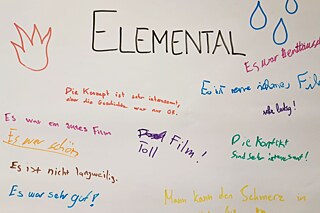 ELEMENTAL
Es war
Die Konzept ist sehr interessant,
aber die Geschichte war nur OK.
Es ist
Film
sehr lustig!
Es war ein gutes Film
Es war schön
Film!
Toll
Die Konzept
sind sehr interessant!
Es ist nicht langweilig.
Es war sehr gut!
Mann kann den Schmerz in